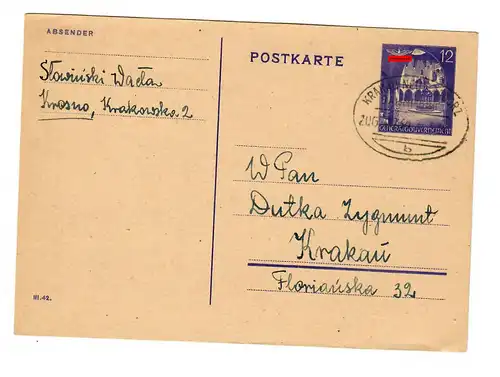 ABSENDER
Słowiński Wacła
Krosno, Krakowska 2
POSTKARTE
12
GENERALGOUVERNEMENT
ZUG
b
WPan
Dutka Zygmunt
Krakau
Floriańska 32
III.42.